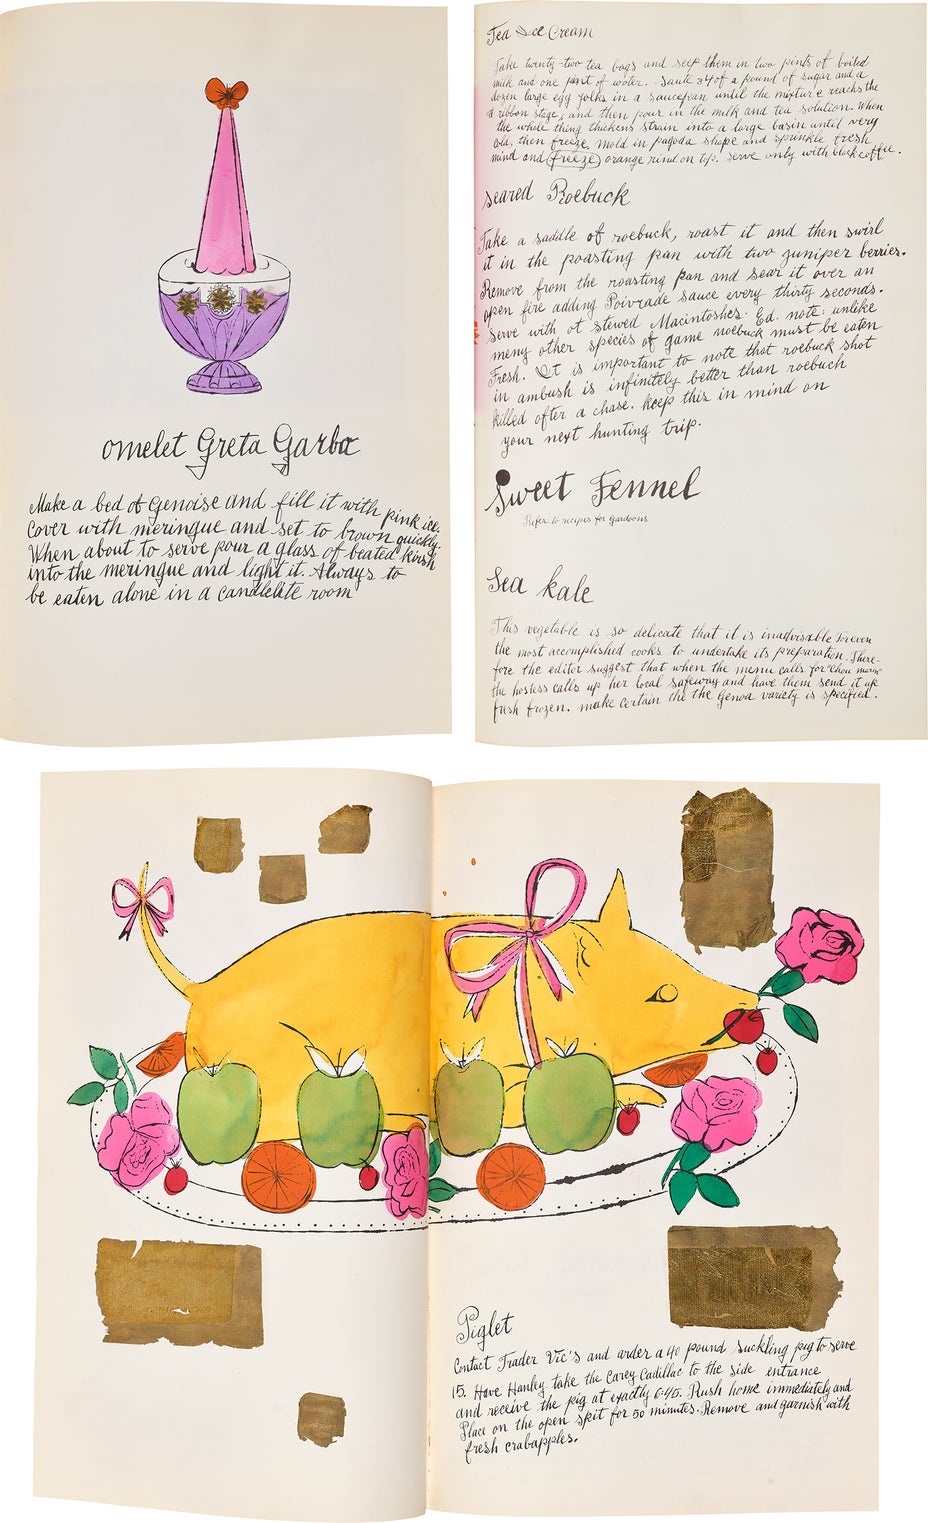 omelet Greta Garbo
Make a bed of Genoise and fill it with pink ice.
Cover with meringue and set to brown quickly.
When about to serve pour a glass of beated kirsh
into the meringue and light it. Always to
be eaten alone in a candlelite room
Tea Ice Cream
Take twenty-two tea bags and seep them in two pints of boiled
milk and one pint of water. Saute 3/4 of a pound of sugar and a
dozen large egg folks in a saucepan until the mixture reaches the
ribbon stage, and then pour in the milk and tea solution. When
the whole thing thickens strain into a large basin until very
cold. then freeze. mold in pagoda shape and sprinkle fresh
mind and (freeze) orange rind on top. serve only with black coffee.
seared Roebuck
Take a saddle of roebuck, roast it and then swirl
it in the poasting pan with two juniper berries.
Remove from the roasting pan and sear it over an
open fire adding Poivrade sauce every thirty seconds.
serve with ot stewed Macintoshes. Ed. note: unlike
meny other species of game roebuck must be eaten
Fresh. It is important to note that roebuck shot
in ambush is infinitely better than roebuch
killed after a chase. keep this in mind on
your next hunting trip.
Sweet Fennel
Refer to recipes for Gardoons
Sea kale
This vegetable is so delicate that it is inadvisable for even
the most accomplished cooks to undertake its preparation. There-
fore the editor suggest that when the menu calls for "chou marin"
the hostess calls up her local safeway and have them send it up
fresh frozen. make certain the the Genoa variety is specified.
Piglet
Contact Trader Vic's and arder a 40 pound suckling pig to serve
15. Have Hanley take the Carey Cadillac to the side entrance
and receive the pig at exactly 6:45. Rush home immediately and
Place on the open spit for 50 minutes. Remove and garnish with
fresh crabapples.